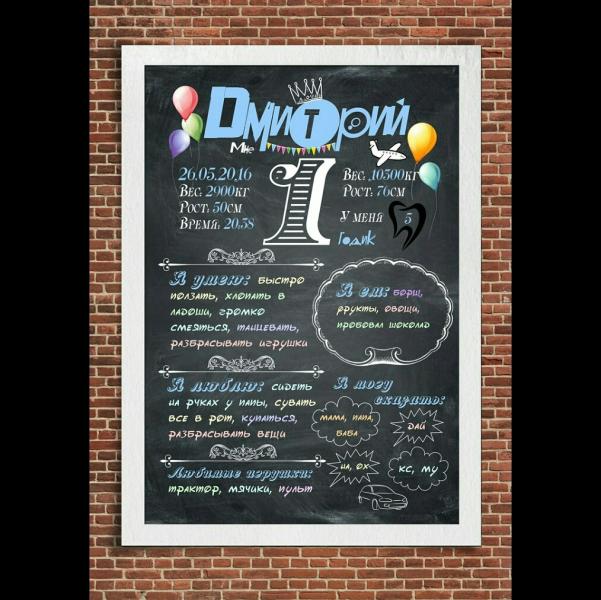 Дмитрий
Мне
26.05.2016
Вес: 2900кг
Рост: 50см
Время: 20:58
1
Годик
Вес: 10500кг
Рост: 76см
У меня 5
Я умею: быстро
ползать, хлопать в
ладоши, громко
смеяться, танцевать,
разбрасывать игрушки
Я ем: борщ,
фрукты, овощи,
пробовал шоколад
Я люблю: сидеть
на ручках у папы, сувать
все в рот, купаться,
разбрасывать вещи
Я могу
сказать:
мама, папа,
баба
дай
на, ох
кс, му
Любимые игрушки:
трактор, мячики, пульт